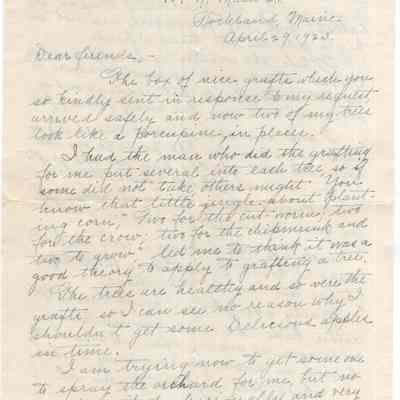 Main St.
Rockland, Maine.
April 29, 1923.
Dear friends,-
The box of nice grafts which you
so kindly sent in response to my request
arrived safely and now two of my trees
look like a porcupine, in places.
I had the man who did the grafting
for me put several into each tree so if
some did not take others might. You
know that little jingle about "planting
ing corn," "Two for the cut-worm, two
for the crow, two for the chipmunk and
two to grow" led me to think it was a
good theory to apply to grafting a tree.
The trees are healthy and so were the
grafts so I can see no reason why I
shouldn't get some Delicious apples
in time.
I am trying now to get some one
to spray the orchard for me, but no
and very